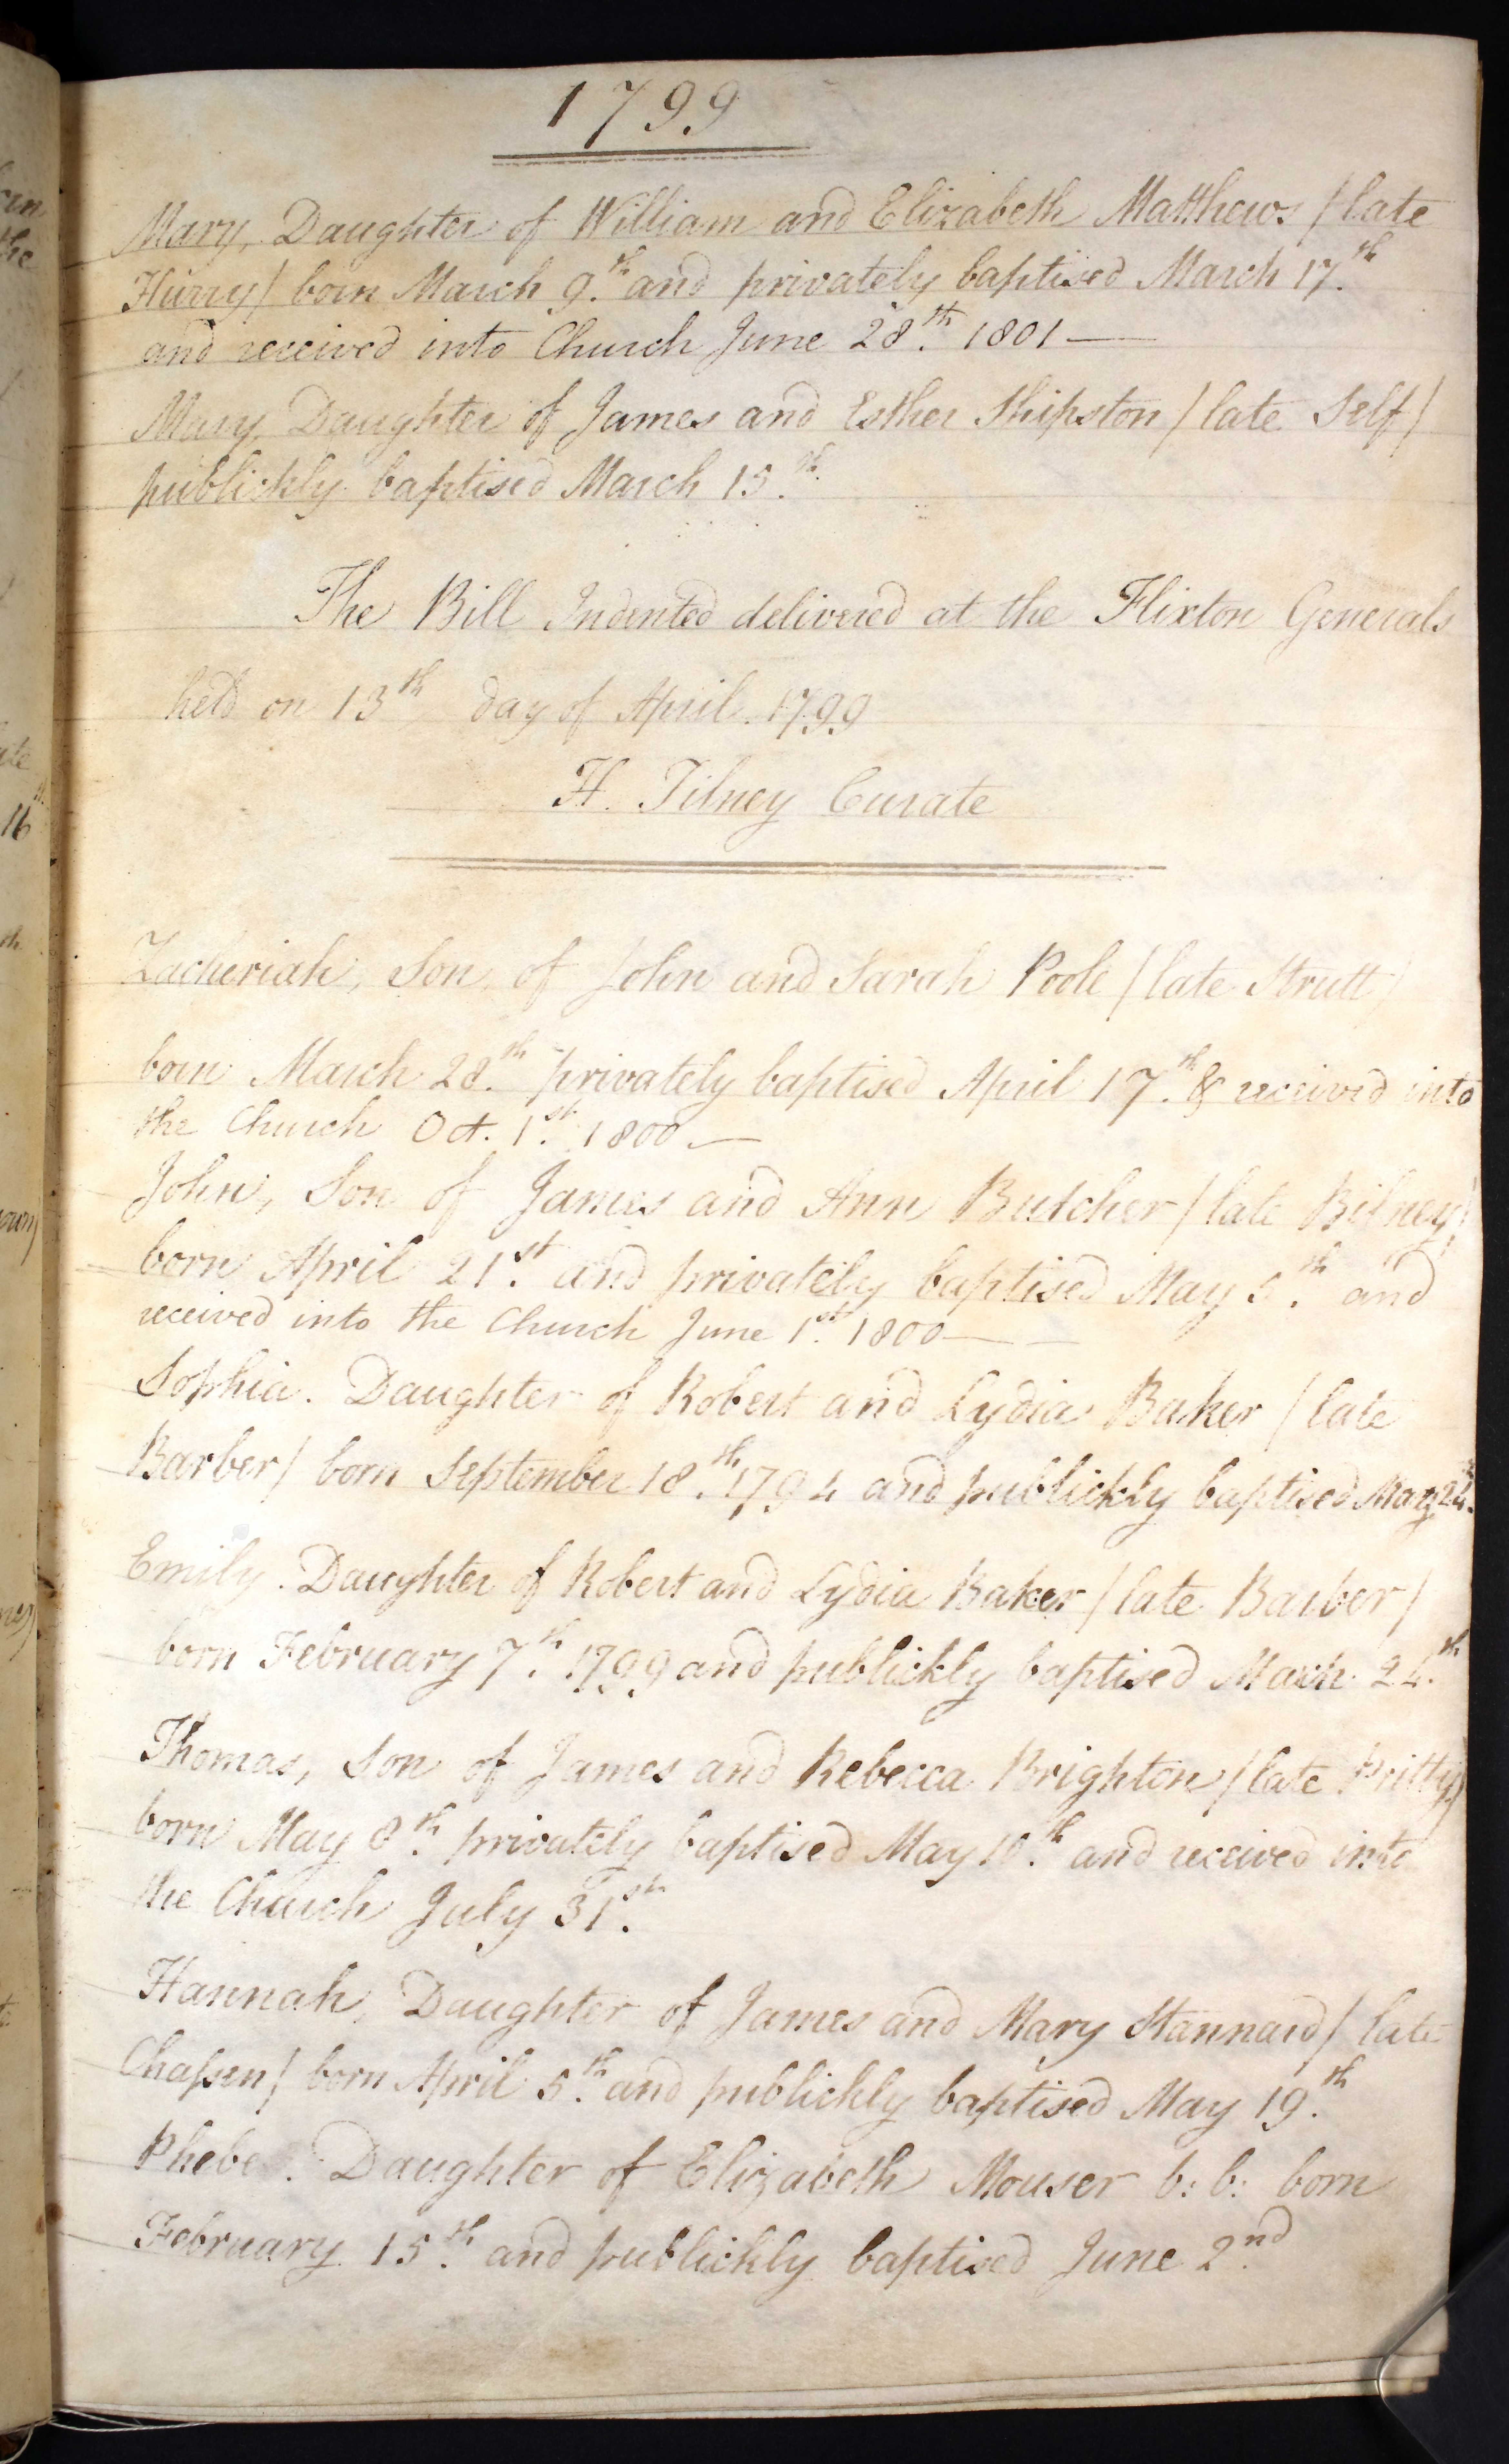 1799
Mary, Daughter of William and Elizabeth Matthews /late
Hurry/ born March 9.th and privately baptised March 17.th
and received into Church June 28.th 1801 —
Mary, Daughter of James and Esther Shipston /late Self/
publickly baptised March 15.th
The Bill Indented delivered at the Flixton Generals
held on 13th day of April 1799
H. Tilney Curate
Zacheriah, Son of John and Sarah Poole /late Strutt/
born March 28.th privately baptised April 17.th & received into
the Church Oct. 1.st 1800 —
John, Son of James and Ann Butcher /late Bilney/
born April 21.st and privately baptised May 5.th and
received into the Church June 1.st 1800 —
Sophia. Daughter of Robert and Lydia Baker /late
Barber/ born September 18.th 1794 and publickly baptised 24.th
Emily. Daughter of Robert and Lydia Baker /late Barber/
born February 7.th 1799 and publickly baptised March 24.th
Thomas, Son of James and Rebecca Brighton /late Pritty/
born May 8.th privately baptised May 10.th and received into
the Church July 31.st
Hannah, Daughter of James and Mary Stannard /late
Chassen/ born April 5.th and publickly baptised May 19.th
Phebe. Daughter of Elizabeth Mouser b: b: born
February 15.th and publickly baptised June 2.nd